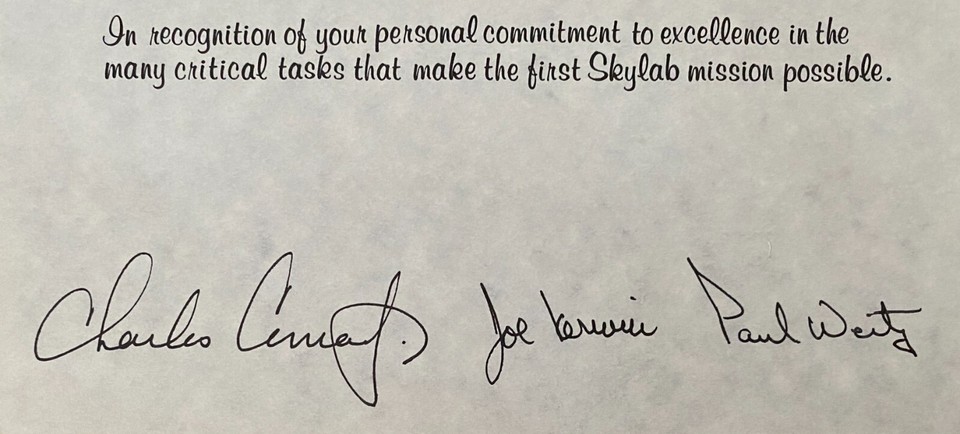 In recognition of your personal commitment to excellence in the
many critical tasks that make the first Skylab mission possible.
Charles Conrad Jr. Joe Kerwin Paul Weitz